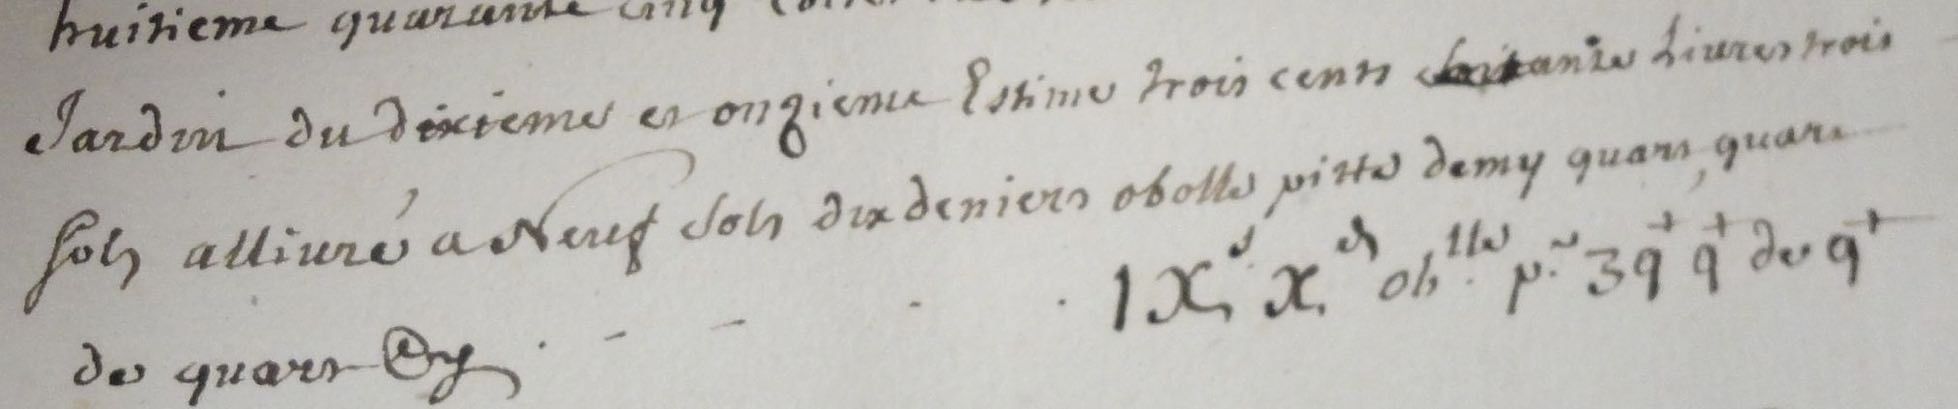 huitieme quarante cinq
Jardin du dixieme et onzieme Estime trois cents soixante Livres trois
sols alliuré a Neuf sols dix deniers obolle pitte demy quart, quart
IX s x d ob lle p. 3 qt qt de qt
de quart Cy . - - - .